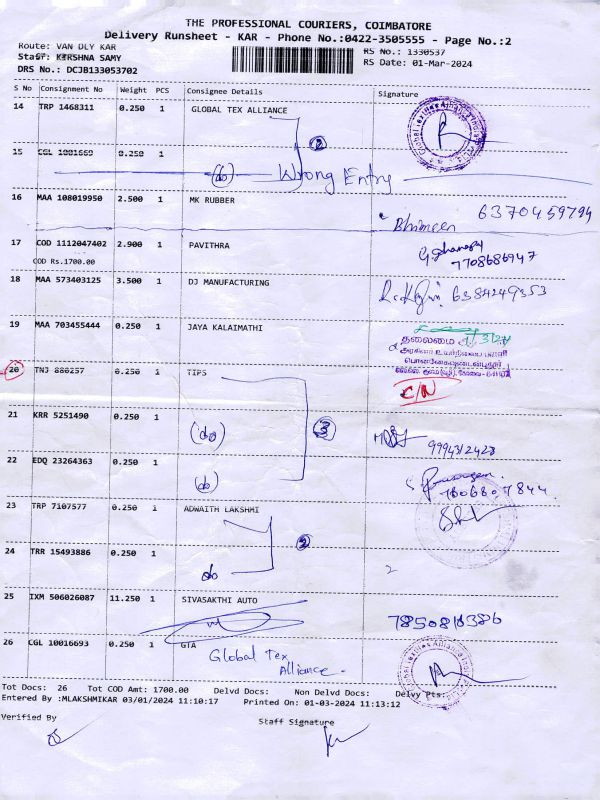 THE PROFESSIONAL COURIERS, COIMBATORE
Delivery Runsheet - KAR - Phone No.:0422-3505555 - Page No.:2
Route: VAN DLY KAR
RS No.: 1330537
Staff: KIRSHNA SAMY
RS Date: 01-Mar-2024
DRS No.: DCJB133053702
S No Consignment No Weight PCS Consignee Details Signature
14 TRP 1468311 0.250 1 GLOBAL TEX ALLIANCE
2
15 CGL 1001669 0.250 1
(do) Wrong Entry
16 MAA 108019950 2.500 1 MK RUBBER
6370459794
17 COD 1112047402 2.900 1 PAVITHRA
COD Rs.1700.00
7708686947
18 MAA 573403125 3.500 1 DJ MANUFACTURING
6384249353
19 MAA 703455444 0.250 1 JAYA KALAIMATHI
தலைமை
20 TNJ 880257 0.250 1 TIPS
C/N
21 KRR 5251490 0.250 1
(do) 3
9994312428
22 EDQ 23264363 0.250 1
(do)
23 TRP 7107577 0.250 1 ADWAITH LAKSHMI
2
24 TRR 15493886 0.250 1
do
25 IXM 506026087 11.250 1 SIVASAKTHI AUTO
26 CGL 10016693 0.250 1 GTA
Global Tex
Alliance.
Tot Docs: 26 Tot COD Amt: 1700.00 Delvd Docs: Non Delvd Docs: Delvy Pts:
Entered By :MLAKSHMIKAR 03/01/2024 11:10:17 Printed On: 01-03-2024 11:13:12
Verified By
Staff Signature